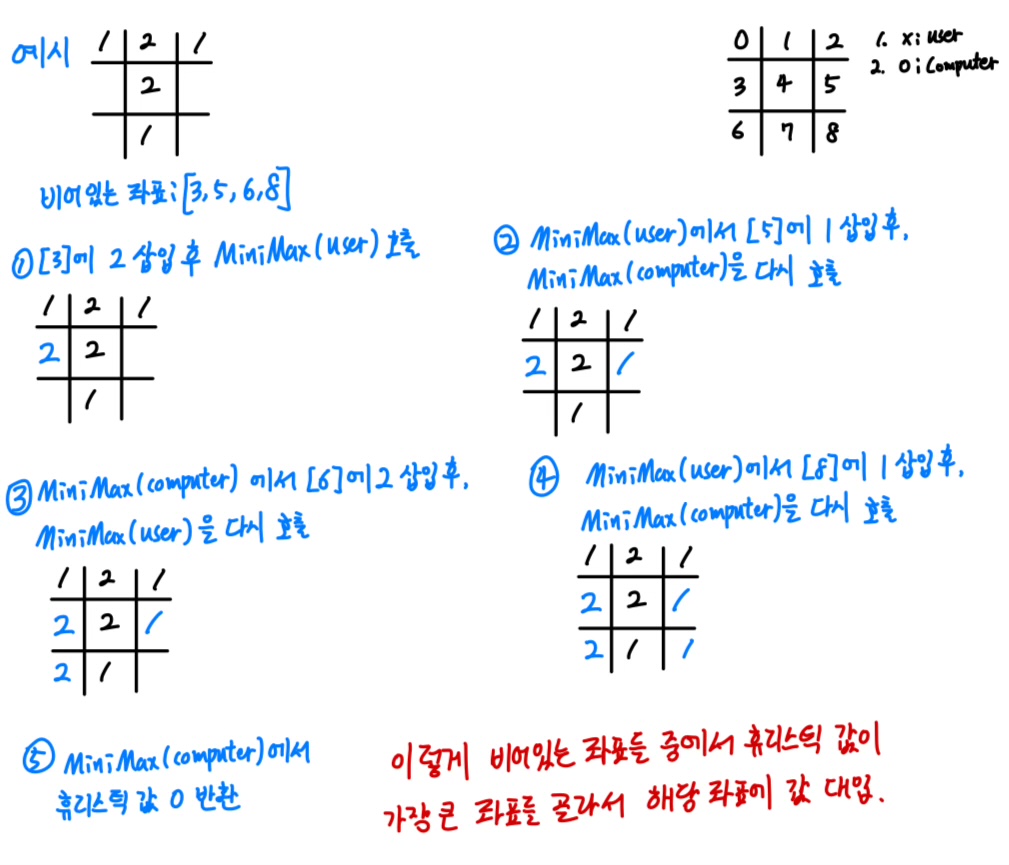 예시
1 2 1
2
1
0 1 2
3 4 5
6 7 8
1. X: user
2. O: Computer
비어있는 좌표: [3, 5, 6, 8]
① [3]에 2 삽입 후 MiniMax(user) 호출
1 2 1
2 2
1
② MiniMax(user)에서 [5]에 1 삽입 후,
MiniMax(computer)을 다시 호출
1 2 1
2 2 1
1
③ MiniMax(computer) 에서 [6]에 2 삽입 후,
MiniMax(user)을 다시 호출
1 2 1
2 2 1
2 1
④ MiniMax(user)에서 [8]에 1 삽입 후,
MiniMax(computer)을 다시 호출
1 2 1
2 2 1
2 1 1
⑤ MiniMax(computer)에서
휴리스틱 값 0 반환
이렇게 비어있는 좌표들 중에서 휴리스틱 값이
가장 큰 좌표를 골라서 해당 좌표에 값 대입.